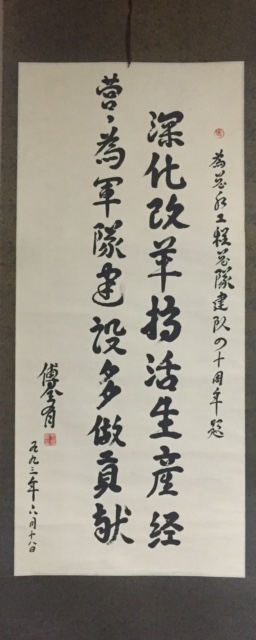 為总后工程总隊建队四十周年题
深化改革搞活生産经
营、為軍隊建设多做貢献
傅全有
一九九三年六月十八日